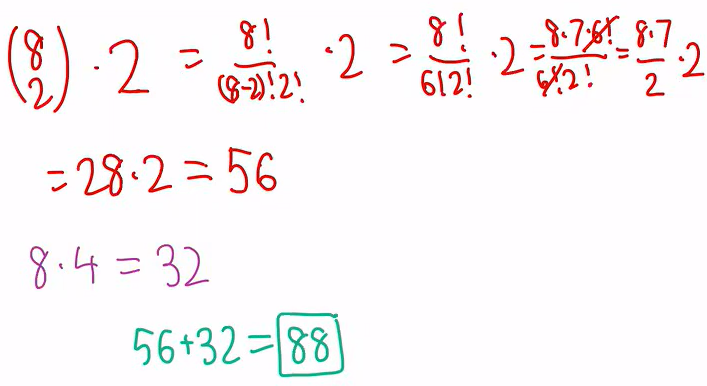 (8 2) · 2 = 8!/(8-2)!2! · 2 = 8!/6!2! · 2 = 8·7·6!/6!·2! = 8·7/2 · 2
= 28·2 = 56
8·4 = 32
56+32 = 88